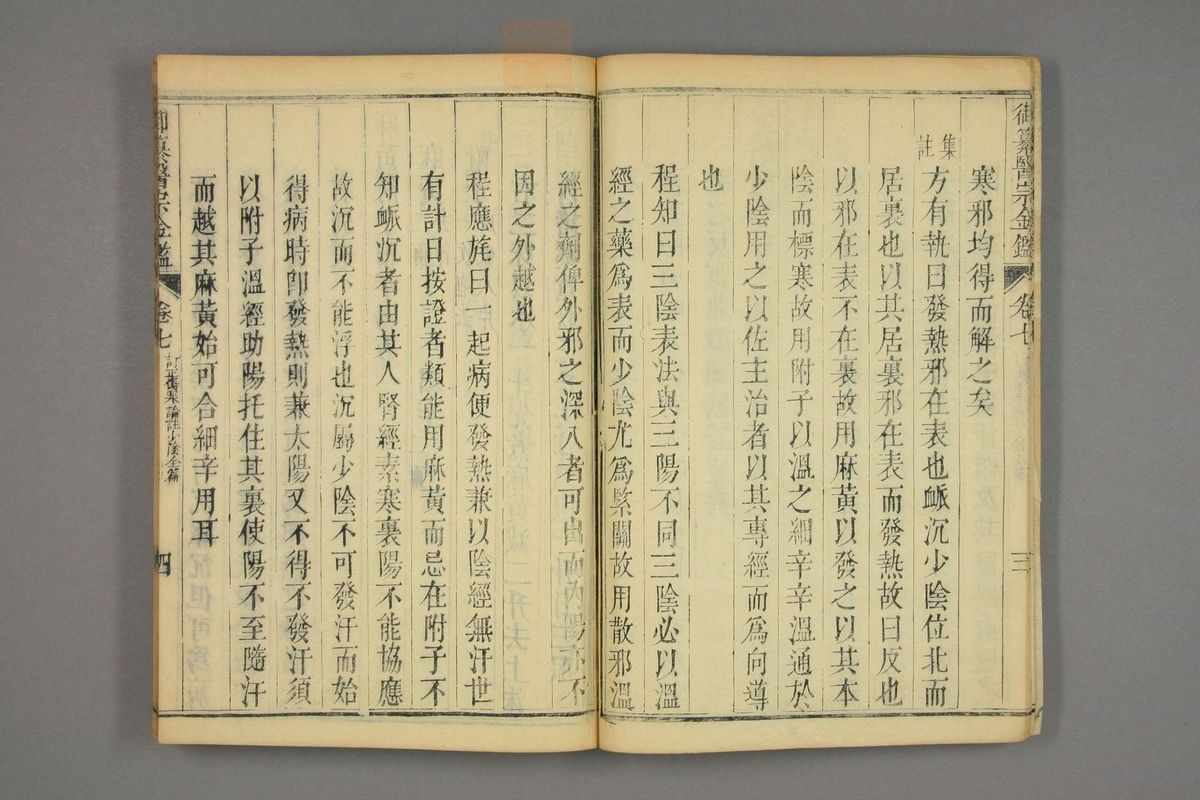 御纂醫宗金鑑 卷七 三
寒邪均得而解之矣
集註
方有執曰發熱邪在表也脈沉少陰位北而
居裏也以其居裏邪在表而發熱故曰反也
以邪在表不在裏故用麻黃以發之以其本
陰而標寒故用附子以溫之細辛辛溫通於
少陰用之以佐主治者以其專經而爲向導
也
程知曰三陰表法與三陽不同三陰必以溫
經之藥爲表而少陰尤爲緊關故用散邪溫
經之劑俾外邪之深入者可出而內陽亦不
因之外越也
程應旄曰一起病便發熱兼以陰經無汗世
有計日按證者類能用麻黃而忌在附子不
知脈沉者由其人腎經素寒裏陽不能協應
故沉而不能浮也沉屬少陰不可發汗而始
得病時卽發熱則兼太陽又不得不發汗須
以附子溫經助陽托住其裏使陽不至隨汗
而越其麻黃始可合細辛用耳
御纂醫宗金鑑 卷七 訂傷寒論註少陰全篇 四